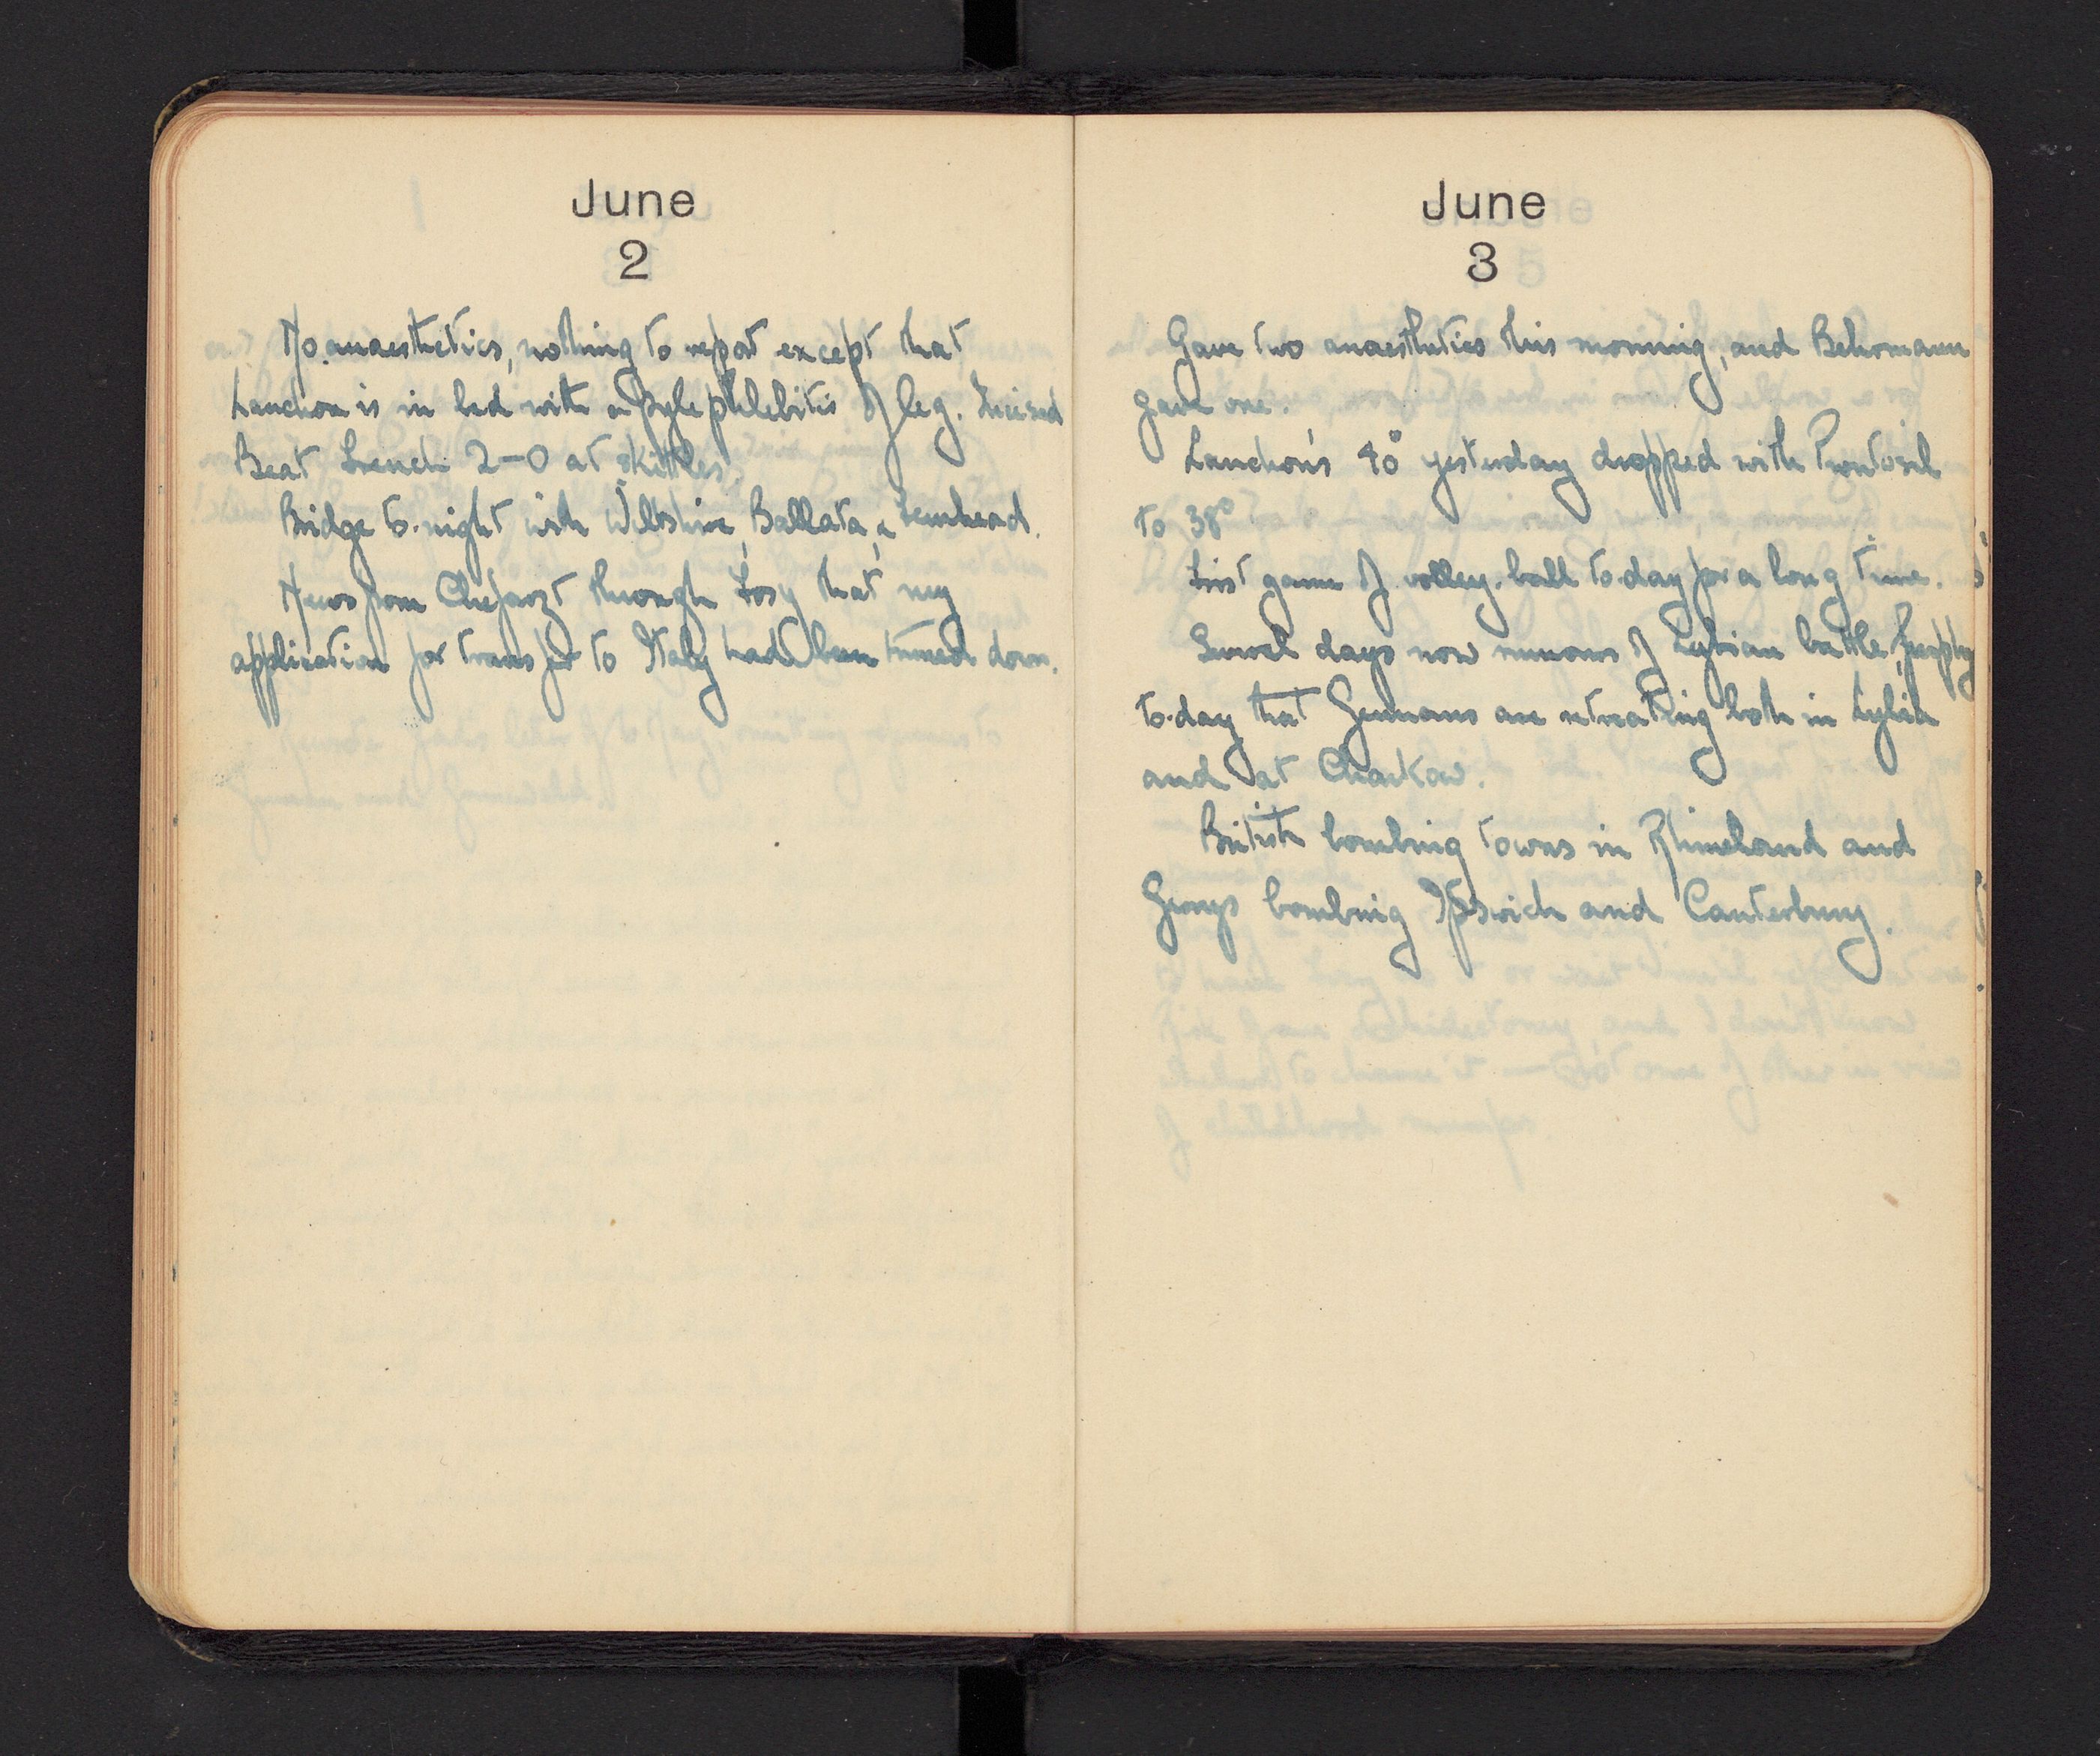 June
2
No anaesthetics, nothing to report except that
Lanchon is in bed with a pylephlebitis of leg. Incised
Beat French 2-0 at skittles.
Bridge to-night with Wiltshire, Ballata, &
News from Chefarzt through Tosy that my
application for transfer to Italy had been turned down.
June
3
Gave two anaesthetics this morning, and Behrmann
gave one.
Lanchon's 40° yesterday dropped with Prontosil
to 38°
First game of volley-ball to-day for a long time.
Several days now rumours of Lybian battle,
to-day that Germans are retreating both in Lybia
and at Charkow.
British bombing towns in Rhineland and
Gerrys bombing Ipswich and Canterbury.